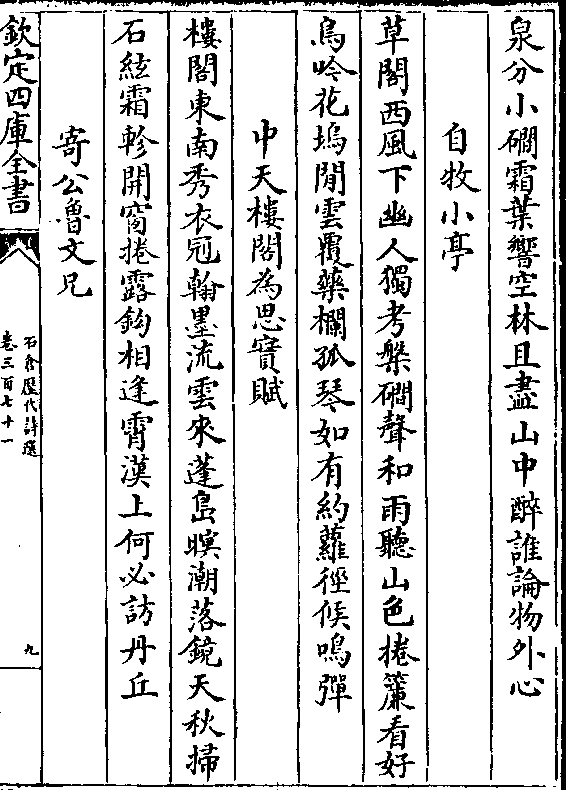 泉分小磵霜葉響空林且盡山中醉誰論物外心
自牧小亭
草閣西風下幽人獨考槃磵聲和雨聽山色捲簾看好
鳥吟花塢閒雲覆藥欄孤琴如有約蘿徑候鳴彈
中天樓閣為思實賦
樓閣東南秀衣冠翰墨流雲來蓬島暝潮落鏡天秋掃
石絃霜軫開窗捲露鈎相逢霄漢上何必訪丹丘
寄公魯文兄
欽定四庫全書
石倉歷代詩選
卷三百七十一
九